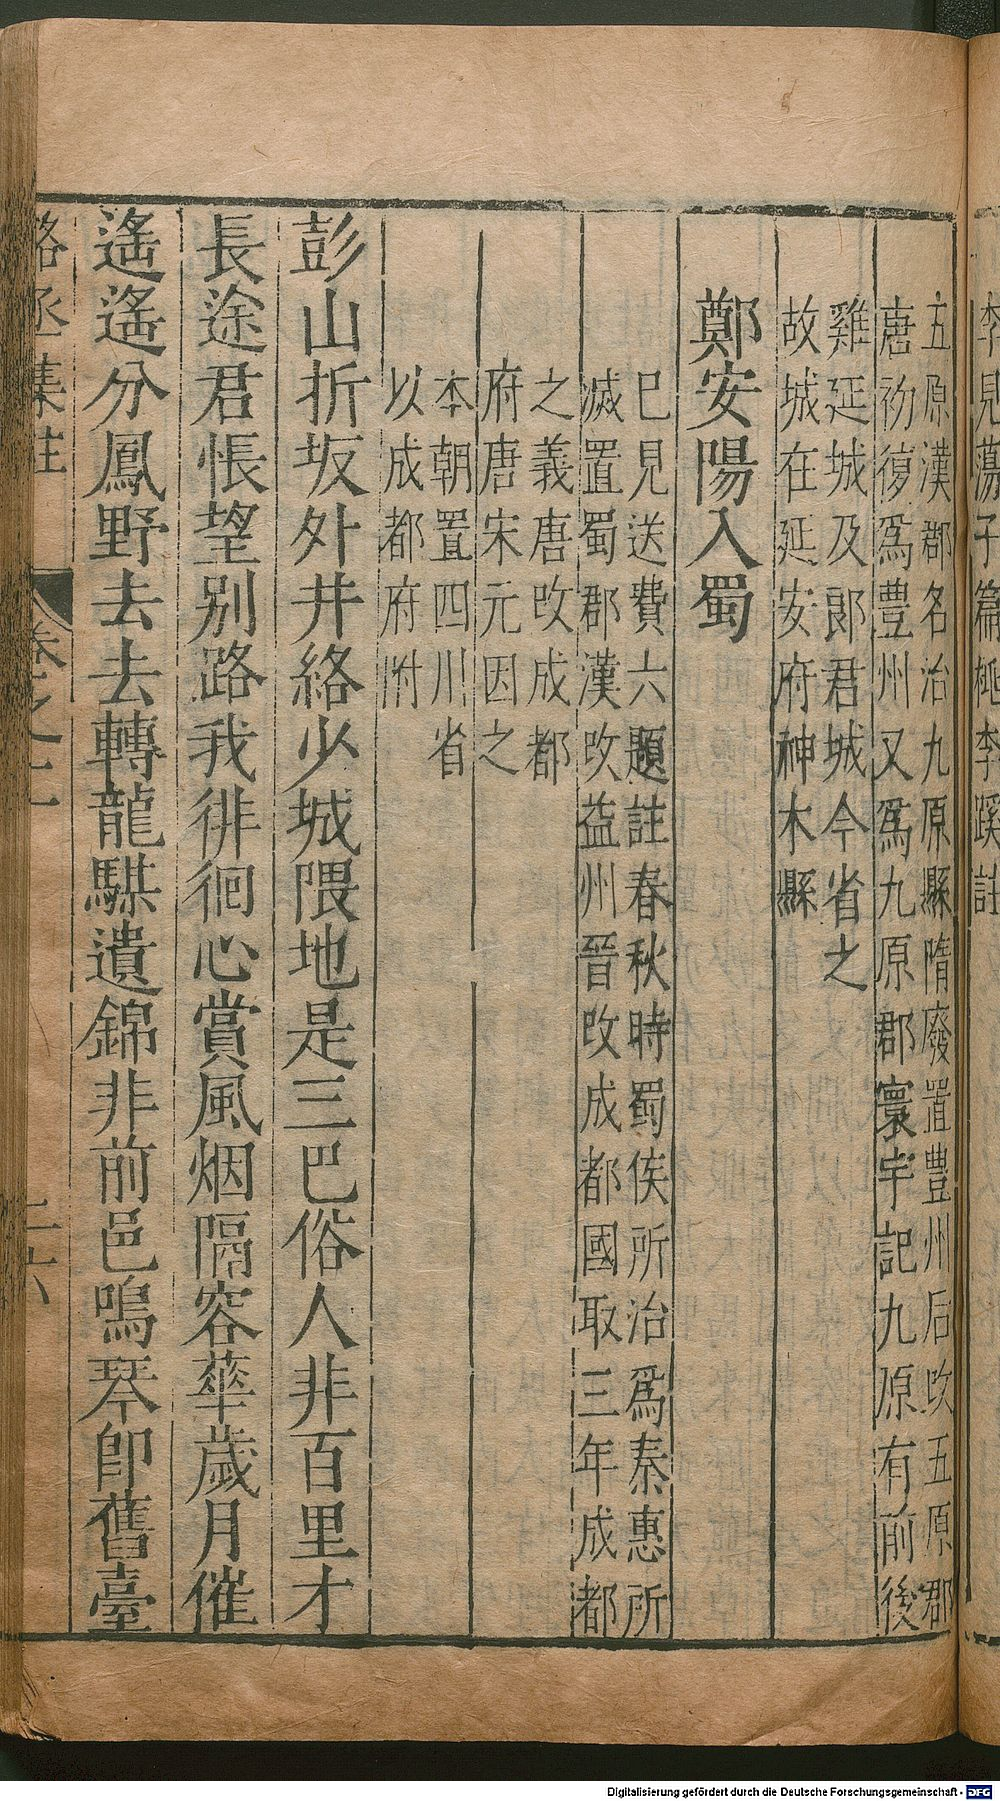 李見蕩子篇桃李蹊註
五原漢郡名治九原縣隋廢置豊州后攺五原郡
唐初復爲豊州又爲九原郡寰宇記九原有前後
雞延城及郎君城今省之
故城在延安府神木縣
鄭安陽入蜀
巳見送費六題註春秋時蜀侯所治爲秦惠所
滅置蜀郡漢攺益州晉攺成都國取三年成都
之義唐攺成都
府唐宋元因之
本朝置四川省
以成都府附
彭山折坂外井絡少城隈地是三巴俗人非百里才
長途君悵望别路我徘徊心賞風烟隔容華歲月催
遙遙分鳳野去去轉龍騏遺錦非前邑鳴琴卽舊臺
駱丞集註
卷之二
二六
Digitalisierung gefördert durch die Deutsche Forschungsgemeinschaft - DFG